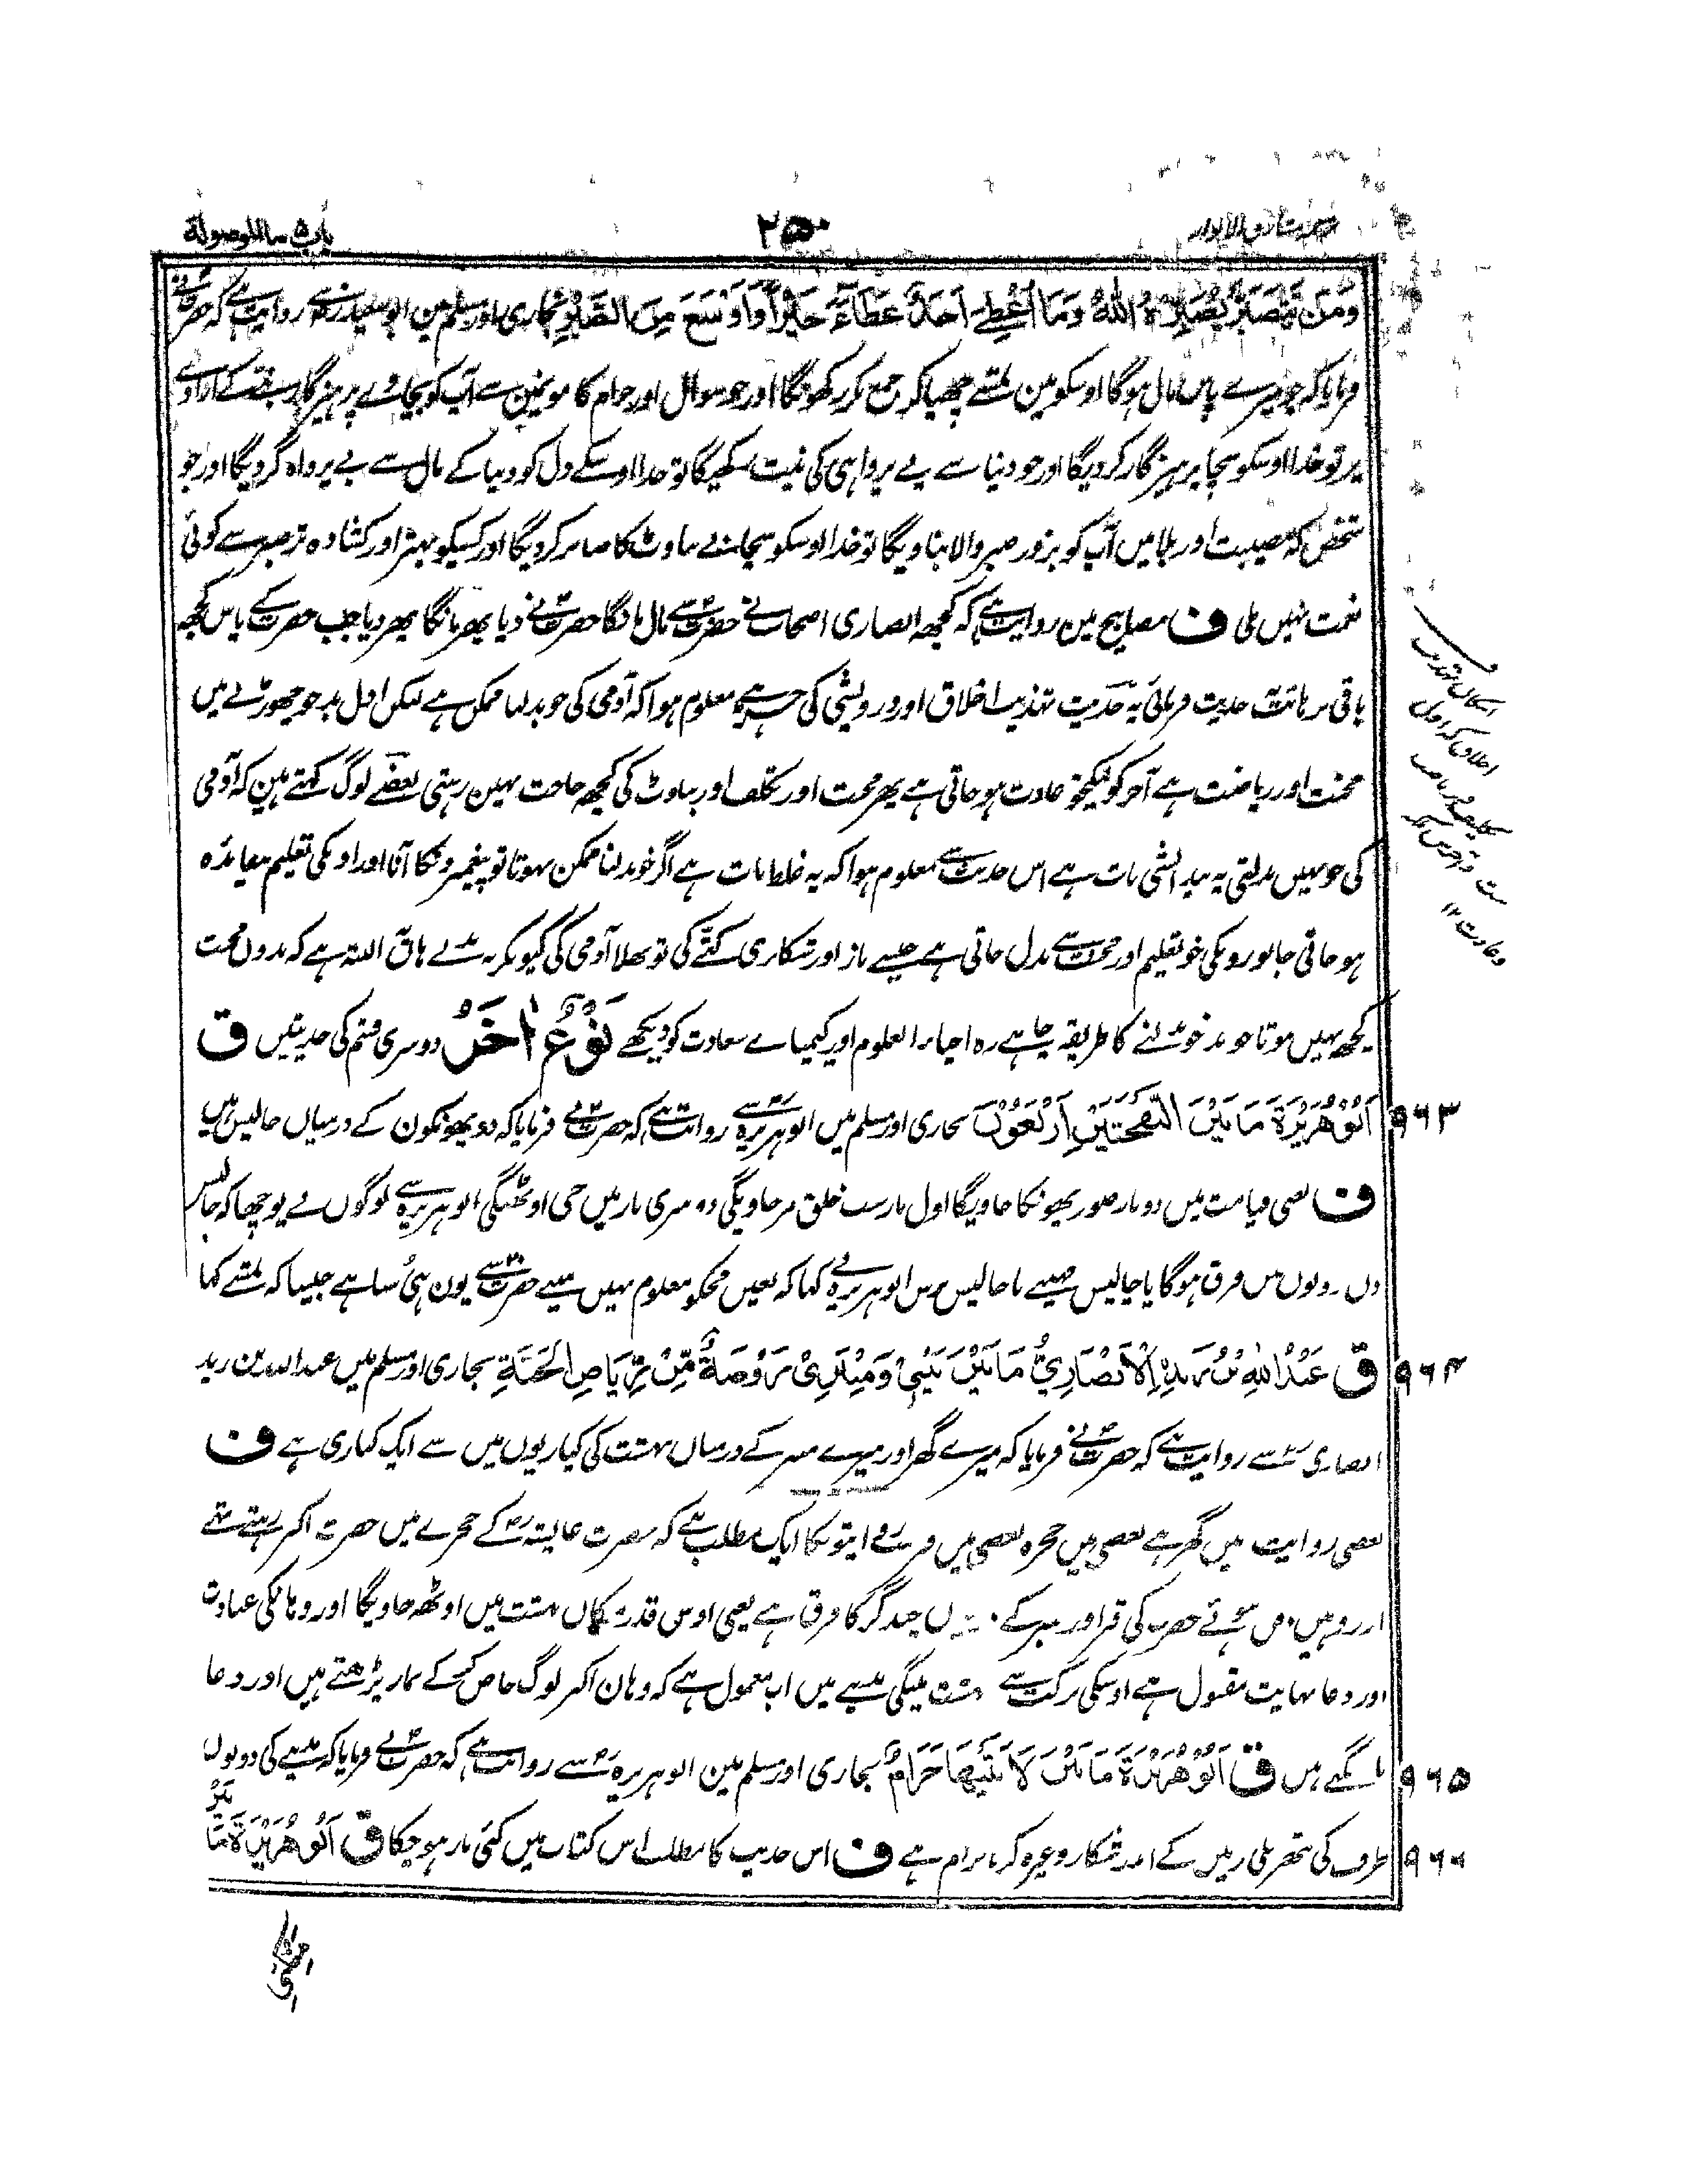 باب ۵ ما الموصولة
۲۵۰
مشارق الانوار
وَمَنْ يَتَصَبَّرْ يُصَبِّرْهُ اللّٰهُ وَمَا اُعْطِيَ اَحَدٌ عَطَاءً خَيْرًا وَاَوْسَعَ مِنَ الصَّبْرِ بخاری اور مسلم مین ابو سعید رض سے روایت ہے کہ حضرت نے
فرمایا کہ جو میرے پاس مال ہوگا اوسکو مین تمسے چھپا کر جمع نکر رکھونگا اور جو سوال اور حرام کامونمین سے آپ کو بچاوے پرہیزگار بننے کے ارادے
پر تو خدا اوسکو سچا پرہیزگار کردیگا اور جو دنیا سے بے پرواہی کی نیت رکھیگا تو خدا اوسکے دل کو دنیا کے مال سے بے پرواہ کردیگا اور جو
شخص کہ مصیبت اور بلا میں آپ کو بزور صبر والا بناویگا تو خدا اوسکو سچا بے بناوٹ کا صابر کردیگا اور کسیکو بہتر اور کشادہ تر صبر سے کوئی
نعمت نہیں ملی ف مصابیح مین روایت ہے کہ کچھ انصاری اصحاب نے حضرت سے مال مانگا حضرت نے دیا پھر مانگا پھر دیا جب حضرت کے پاس کچھ
باقی نرہا تب حدیث فرمائی یہ حدیث تہذیب اخلاق اور درویشی کی جڑ ہے معلوم ہوا کہ آدمی کی خو بدلنا ممکن ہے لیکن اول بد خو چھوڑنے میں
محنت اور ریاضت ہے آخر کو نیکخو عادت ہوجاتی ہے پھر محنت اور تکلف اور بناوٹ کی کچھ حاجت نہین رہتی بعضے لوگ کہتے ہین کہ آدمی
کی خو نہیں بدلتی یہ پیدائشی بات ہے اس حدیث سے معلوم ہوا کہ یہ غلط بات ہے اگر خو بدلنا ممکن نہوتا تو پیغمبرونکا آنا اور اونکی تعلیم بیفائدہ
ہوجاتی جانورونکی خو تعلیم اور محنت سے بدل جاتی ہے جیسے باز اور شکاری کتّے کی تو بھلا آدمی کی کیونکر نہ بدلے ہاں البتہ ہے کہ بدون محنت
کچھ نہیں ہوتا جو بد خو بدلنے کا طریقہ چاہے وہ احیاء العلوم اور کیمیاے سعادت کو دیکھے نَوْعٌ اٰخَرُ دوسری قسم کی حدیثیں ق
۹۶۳ اَبُوْ هُرَيْرَةَ مَا بَيْنَ النَّفْخَتَيْنِ اَرْبَعُوْنَ بخاری اور مسلم میں ابو ہریرہ رض سے روایت ہے کہ حضرت نے فرمایا کہ دو پھونکون کے درمیاں چالیس ہیں
ف یعنی قیامت میں دو بار صور پھونکا جاویگا اول بار سب خلق مرجاویگی دوسری بار میں جی اوٹھیگی ابو ہریرہ سے لوگوں نے پوچھا کہ چالیس
دن دونوں میں فرق ہوگا یا چالیس مہینے یا چالیس برس ابو ہریرہ نے کہا کہ تعیین مجکو معلوم نہیں مینے حضرت سے یون ہی سنا ہے جیسا کہ تمسے کہا
۹۶۴ ق عَبْدُ اللّٰهِ بْنُ زَيْدٍ الْاَنْصَارِيُّ مَا بَيْنَ بَيْتِيْ وَمِنْبَرِيْ رَوْضَةٌ مِّنْ رِّيَاضِ الْجَنَّةِ بخاری اور مسلم میں عبد اللہ بن زید
انصاری رض سے روایت ہے کہ حضرت نے فرمایا کہ میرے گھر اور میرے منبر کے درمیاں بہشت کی کیاریوں میں سے ایک کیاری ہے ف
بعضی روایت میں گھر ہے بعضی میں حجرہ بعضی میں قبر سب روایتونکا ایک مطلب ہے کہ حضرت عایشہ رض کے حجرے میں حضرت اکثر رہتے تھے
اور وہیں دفن ہوئے حضرت کی قبر اور منبر کے چند گز کا فرق ہے یعنی اوس قدر مکاں بہشت میں اوٹھ جاویگا اور وہانکی عبادت
اور دعا نہایت مقبول ہے اوسکی برکت سے بہشت ملیگی مدینے میں اب معمول ہے کہ وہان اکثر لوگ خاص کرکے نماز پڑھتے ہیں اور دعا
۹۶۵ مانگتے ہیں ق اَبُوْ هُرَيْرَةَ مَا بَيْنَ لَابَتَيْهَا حَرَامٌ بخاری اور مسلم مین ابو ہریرہ رض سے روایت ہے کہ حضرت نے فرمایا کہ مدینے کی دونوں
۹۶۶ طرف کی پتھریلی زمیں کے اندر شکار وغیرہ کرنا حرام ہے ف اس حدیث کا مطلب اس کتاب میں کئی بار ہو چکا ق اَبُوْ هُرَيْرَةَ مَا بَيْنَ